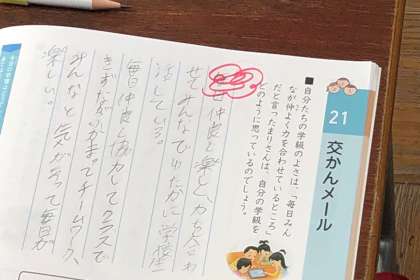 21
交かんメール
■自分たちの学級のよさは、「毎日みん
なが仲よく力を合わせているところ」
だと言ったまりさんは、自分の学級を
どのように思っているのでしょう。
毎日仲良く楽しく、力を合わ
せてみんなで
活している。
毎日仲良く協力してクラスで
チームワーク、
みんなと気があって毎日が
楽しい。